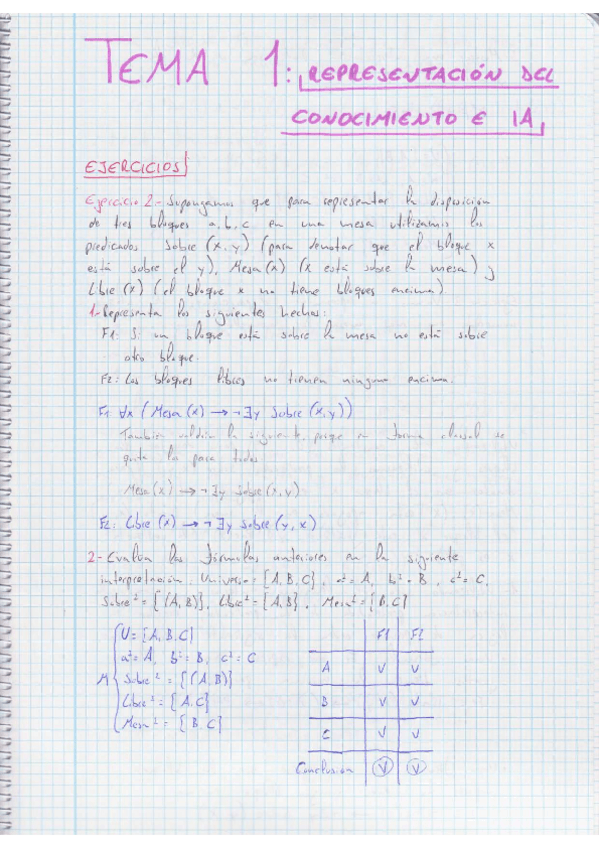 TEMA 1: REPRESENTACIÓN DEL
CONOCIMIENTO E IA
EJERCICIOS
Ejercicio 2.- Supongamos que para representar la disposición
de tres bloques a, b, c en una mesa utilizamos los
predicados Sobre (x, y) (para denotar que el bloque x
está sobre el y), Mesa (x) (x está sobre la mesa) y
Libre (x) (el bloque x no tiene bloques encima)
1.- Representa los siguientes hechos:
F1: Si un bloque está sobre la mesa no está sobre
otro bloque.
F2: Los bloques libres no tienen ninguno encima.
F1: ∀x (Mesa (x) → ¬∃y Sobre (x, y))
También valdría la siguiente, porque en forma clausal se
quita los para todos
Mesa (x) → ¬∃y Sobre (x, y)
F2: Libre (x) → ¬∃y Sobre (y, x)
2.- Evalúa las fórmulas anteriores en la siguiente
interpretación. Universo = {A, B, C}, aᴵ = A, bᴵ = B, cᴵ = C,
Sobreᴵ = {(A, B)}, Libreᴵ = {A, B}, Mesaᴵ = {B, C}
U = {A, B, C}
aᴵ = A, bᴵ = B, cᴵ = C
M Sobreᴵ = {(A, B)}
Libreᴵ = {A, C}
Mesaᴵ = {B, C}
F1 F2
A V V
B V V
C V V
Conclusión V V